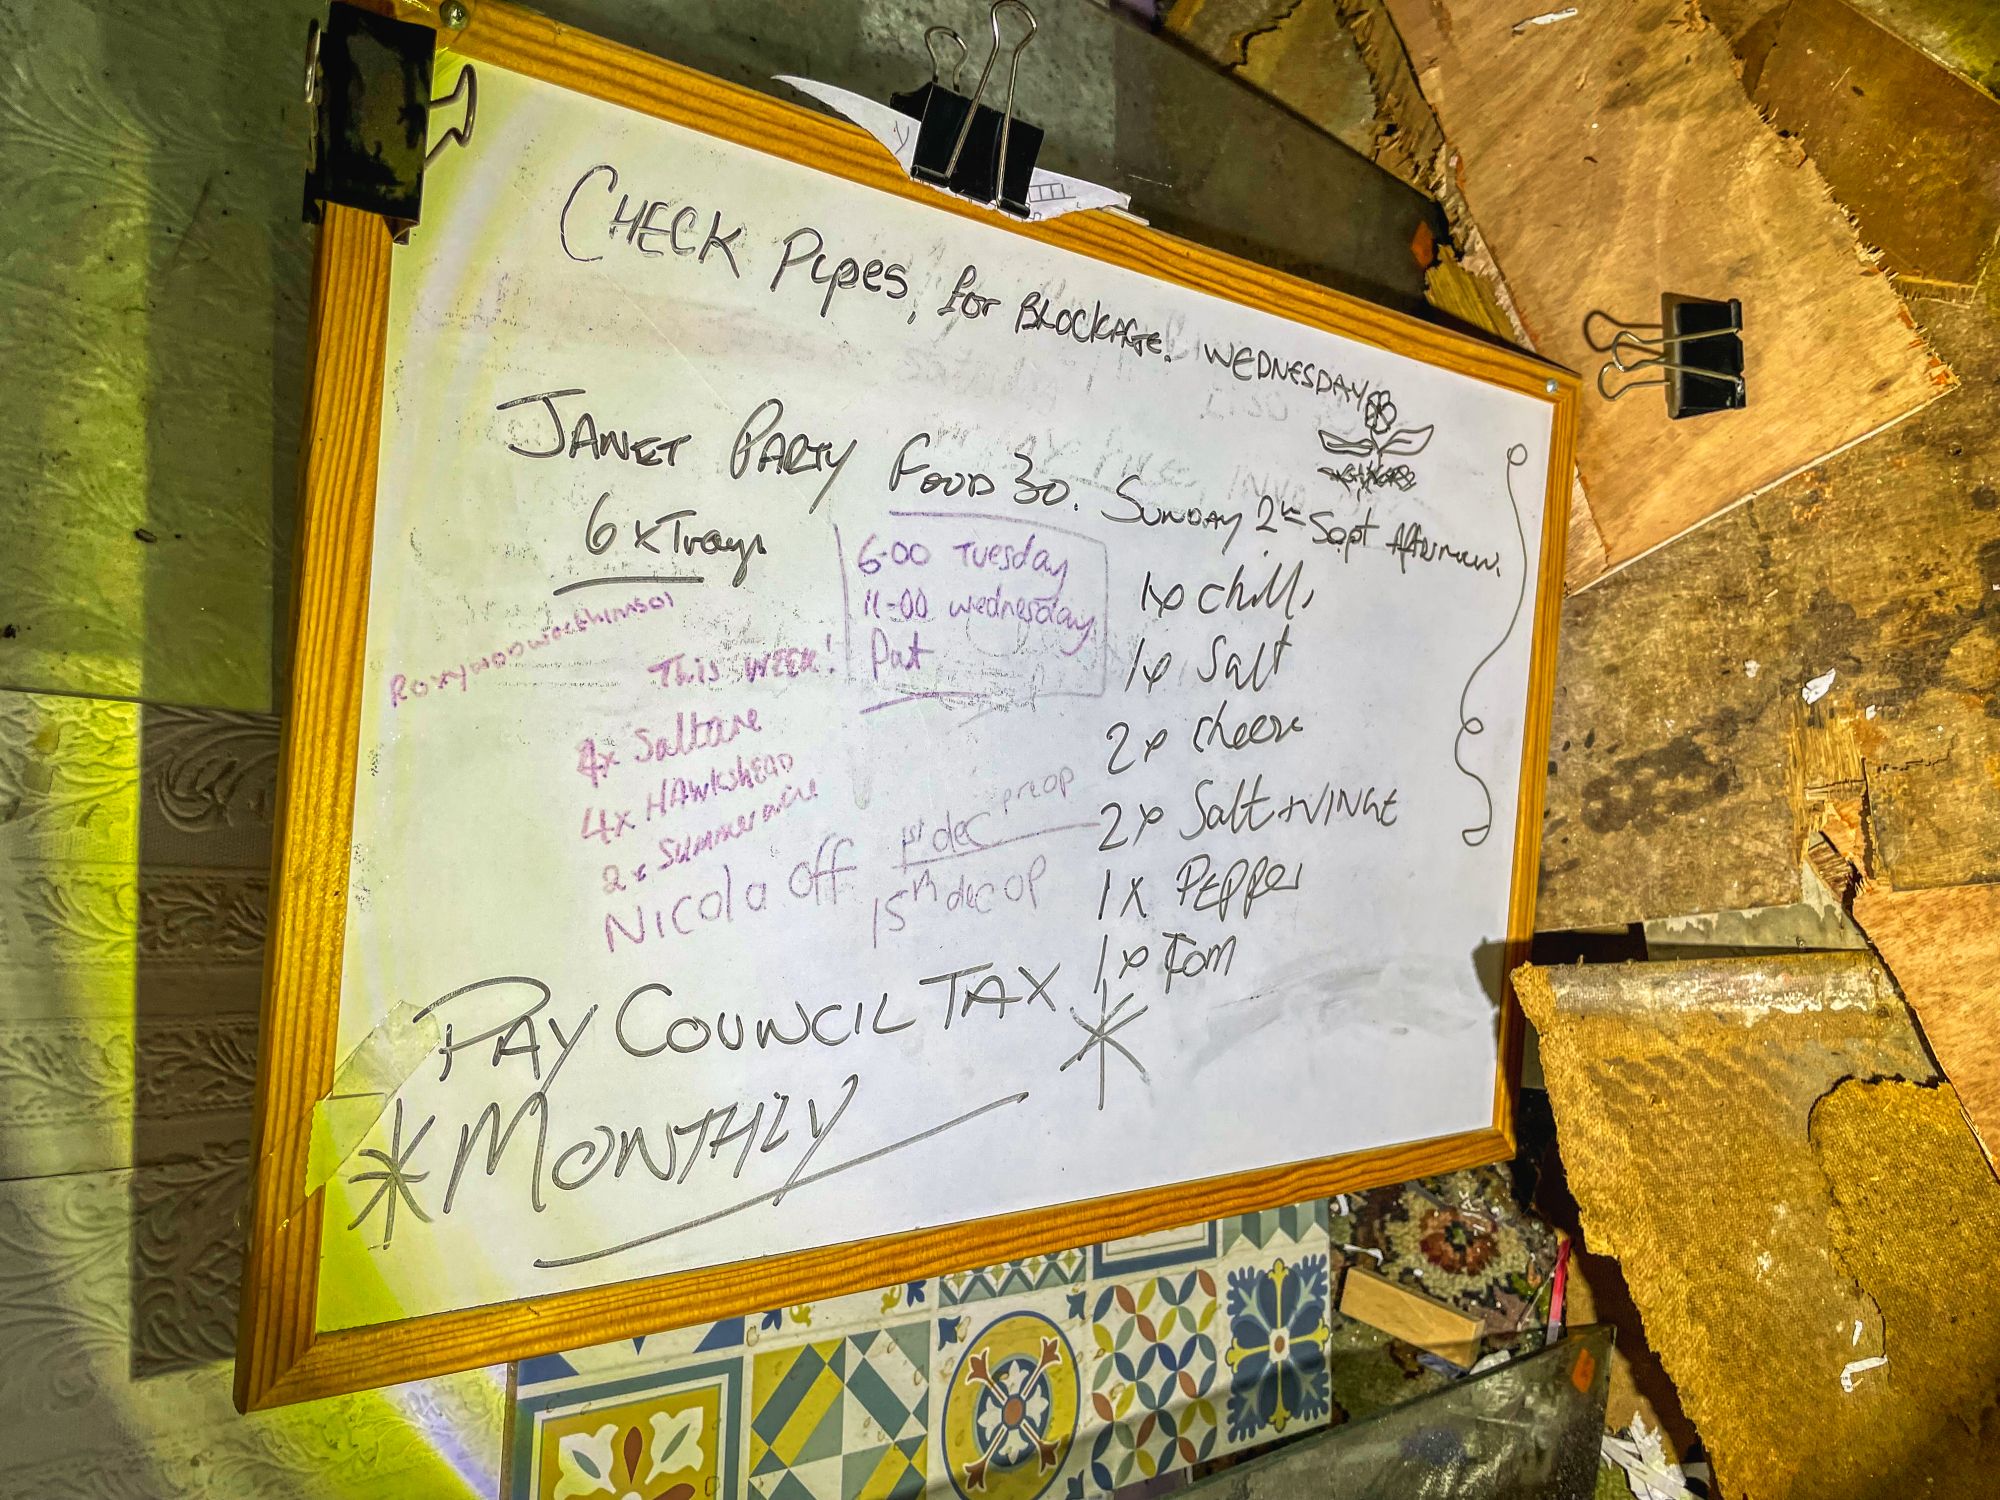 CHECK PIPES, for BLOCKAGE. WEDNESDAY
JANET PARTY FOOD 30. SUNDAY 2nd Sept Afternoon.
6 x Trays
6-00 Tuesday
11-00 wednesday
Pat
This WEEK!
4x Saltaire
4x HAWKSHEAD
2x Summer wine
Nicola off 1st dec preop
15th dec op
1x chilli
1x Salt
2x cheese
2x Salt +
1x PEPPER
1x Tom
PAY COUNCIL TAX
MONTHLY